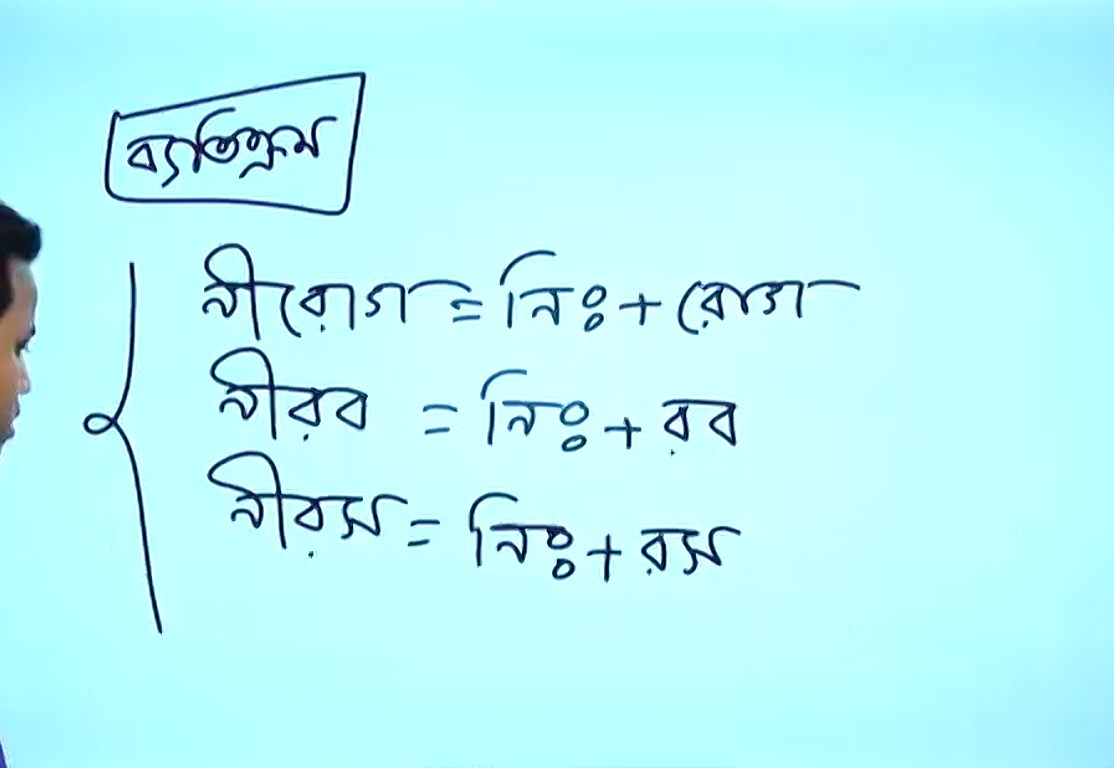 ব্যতিক্রম
নীরোগ = নিঃ + রোগ
নীরব = নিঃ + রব
নীরস = নিঃ + রস